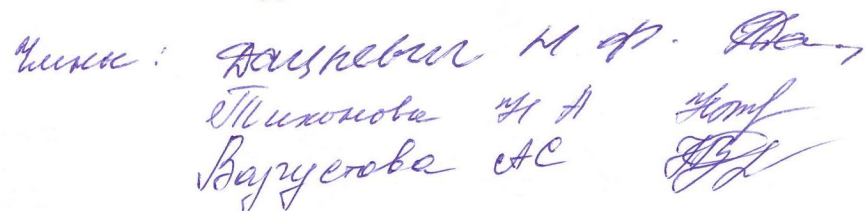 Члены: Дацкевич Н. Ф.
Тихонова Н А
Воугустова АС